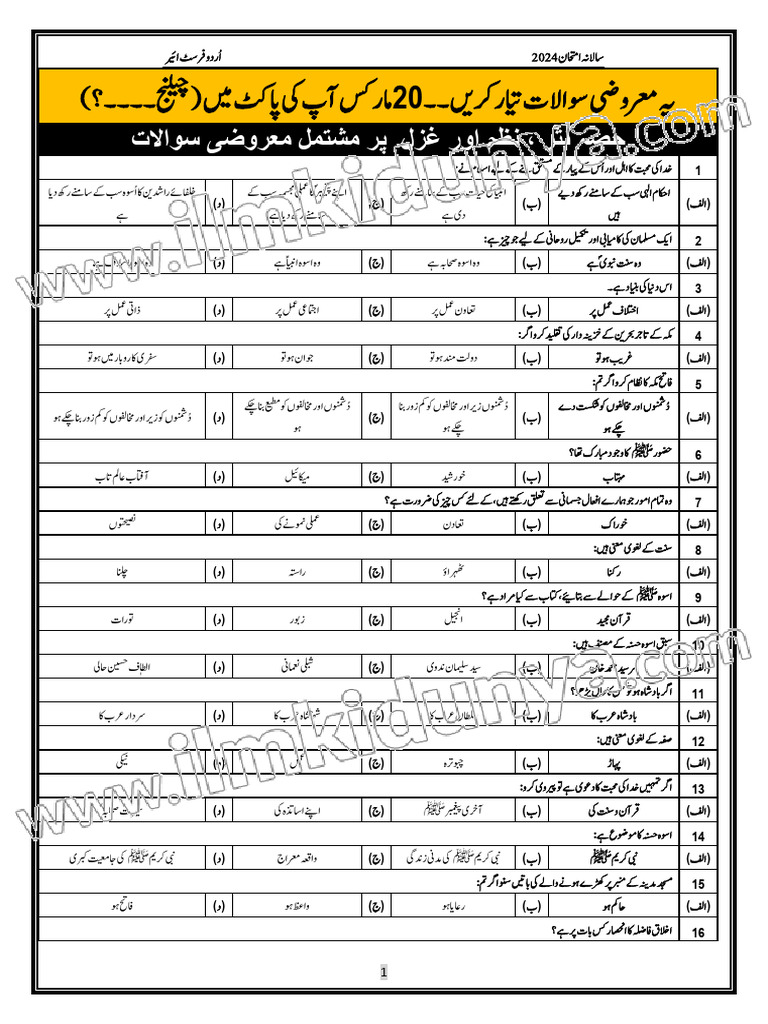 سالانہ امتحان 2024 اُردو فرسٹ ائیر
یہ معروضی سوالات تیار کریں۔۔20 مارکس آپ کی پاکٹ میں (چیلنج۔۔۔۔؟)
نظم اور غزل پر مشتمل معروضی سوالات
1 خدا کی محبت کا اہل اور اُس کے پیار کے مستحق بننے کے لیے اسلام نے:
(الف) احکام الٰہی سب کے سامنے رکھ دیے ہیں (ب) رکھ دی ہے (ج) کا عملی مجسمہ سب کے سامنے رکھ دیا ہے (د) خلفائے راشدین کا اُسوہ سب کے سامنے رکھ دیا ہے
2 ایک مسلمان کی کامیابی اور تکمیل روحانی کے لیے جو چیز ہے:
(الف) وہ سنت نبویؐ ہے (ب) وہ اسوہ صحابہ ہے (ج) وہ اسوہ انبیاؑ ہے (د)
3 اس دنیا کی بنیاد ہے۔
(الف) اختلاف عمل پر (ب) تعاون عمل پر (ج) اجتماعی عمل پر (د) ذاتی عمل پر
4 مکہ کے تاجر بحرین کے خزینہ دار کی تقلید کرو اگر:
(الف) غریب ہو تو (ب) دولت مند ہو تو (ج) جوان ہو تو (د) سفری کاروبار میں ہو تو
5 فاتح مکہ کا نظام کرو اگر تم:
(الف) دُشمنوں اور مخالفوں کو شکست دے چکے ہو (ب) دُشمنوں زیر اور مخالفوں کو کم زور بنا چکے ہو (ج) دُشمنوں اور مخالفوں کو مطیع بنا چکے ہو (د) دُشمنوں کو زیر اور مخالفوں کو کم زور بنا چکے ہو
6 حضور ﷺ کا وجود مبارک تھا؟
(الف) مہتاب (ب) خورشید (ج) میکائیل (د) آفتاب عالم تاب
7 وہ تمام امور جو ہمارے افعال جسمانی سے تعلق رکھتے ہیں، کے لئے کس چیز کی ضرورت ہے؟
(الف) خوراک (ب) تعاون (ج) عملی نمونے کی (د) نصیحتوں
8 سنت کے لغوی معنی ہیں:
(الف) رکنا (ب) ٹھہراؤ (ج) راستہ (د) چلنا
9 اسوہ ﷺ کے حوالے سے بتایئے، کتاب سے کیا مراد ہے؟
(الف) قرآن مجید (ب) انجیل (ج) زبور (د) تورات
10 سبق اسوہ حسنہ کے مصنف ہیں:
(الف) سرسید احمد خان (ب) سید سلیمان ندوی (ج) شبلی نعمانی (د) الطاف حسین حالی
11 اگر بادشاہ ہو تو
(الف) بادشاہ عرب کا (ب) سلطان عرب کا (ج) شہنشاہ عرب کا (د) سردار عرب کا
12 صفہ کے لغوی معنی ہیں:
(الف) پہاڑ (ب) چبوترہ (ج) (د) نیکی
13 اگر تمہیں خدا کی محبت کا دعویٰ ہے تو پیروی کرو:
(الف) قرآن و سنت کی (ب) آخری پیغمبر ﷺ (ج) اپنے اساتذہ کی (د)
14 اسوہ حسنہ کا موضوع ہے:
(الف) نبی کریم ﷺ (ب) نبی کریم ﷺ کی مدنی زندگی (ج) واقعہ معراج (د) نبی کریم ﷺ کی جامعیت کبریٰ
15 مسجد مدینہ کے منبر پر کھڑے ہونے والے کی باتیں سنو اگر تم:
(الف) حاکم ہو (ب) رعایا ہو (ج) واعظ ہو (د) فاتح ہو
16 اخلاق فاضلہ کا انحصار کس بات پر ہے؟
1
www.ilmkidunya.com
www.ilmkidunya.com